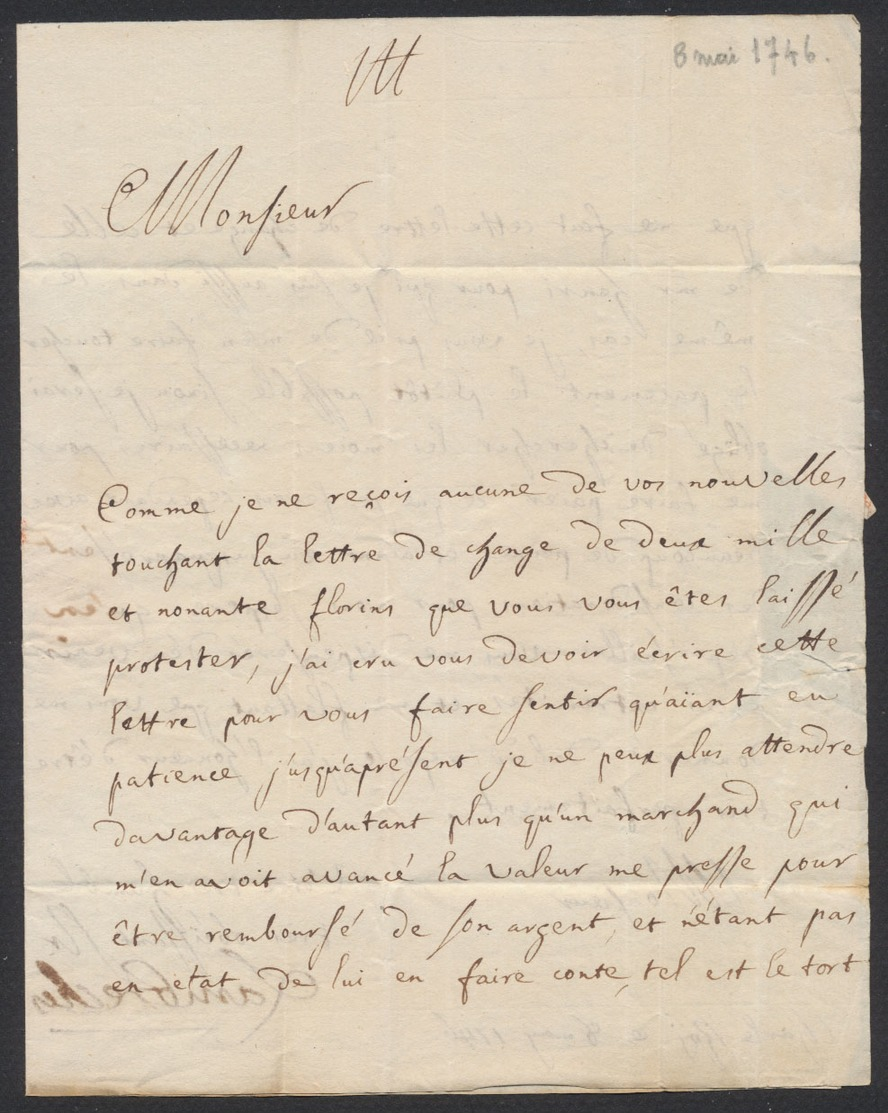 8 mai 1746.
Monsieur
Comme je ne reçois aucune de vos nouvelles
touchant la lettre de change de deux mille
et nonante florins que vous vous êtes laissé
protester, j'ai cru vous devoir écrire cette
lettre pour vous faire sentir qu'aïant eu
patience j'usqu'aprésent je ne peux plus attendre
davantage d'autant plus qu'un marchand qui
m'en avoit avancé la valeur me presse pour
être remboursé de son argent, et n'étant pas
en etat de lui en faire conte, tel est le tort